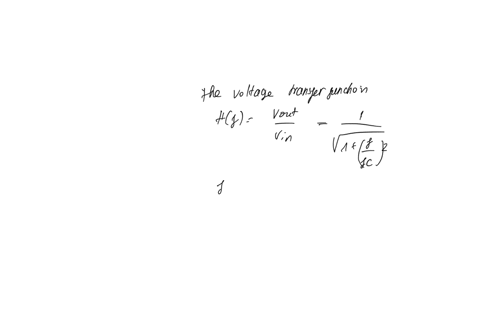 The voltage transfer function
H(f) = Vout / Vin = 1 / √(1 + (f / fc)²)
f